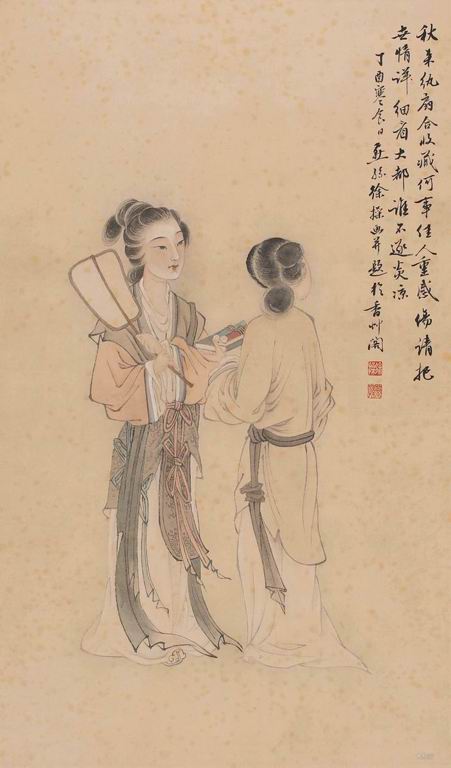 秋来纨扇合收藏何事佳人重感伤请把
世情详细看大都谁不逐炎凉
丁酉寒食日燕孙徐操画并题於香草阁